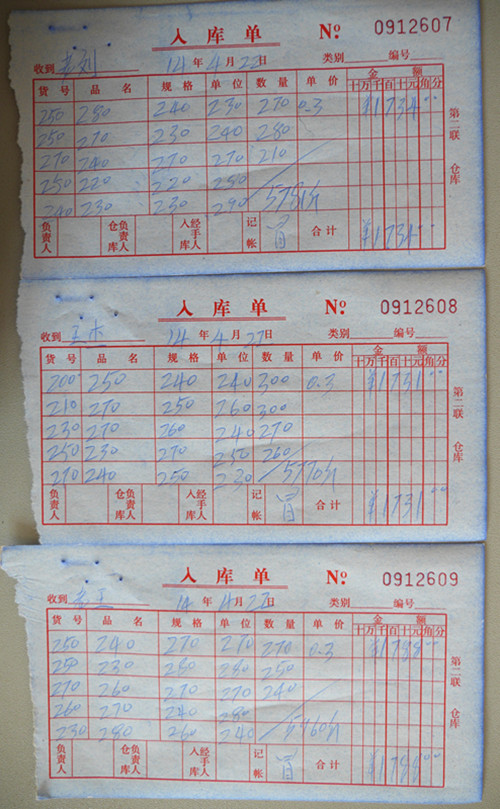 入库单 № 0912607
收到 老刘 14年4月22日 类别 编号
货号 品名 规格 单位 数量 单价 金额
十万千百十元角分
250 280 240 230 270 0.3 ¥1734.00
250 270 230 240 280
270 240 270 270 210
250 220 220 250
240 230 230 290 5781斤
第二联 仓库
负责人 仓库负责人 入库经手人 记帐 合计 ¥1734.00
入库单 № 0912608
收到 王杰 14年4月27日 类别 编号
货号 品名 规格 单位 数量 单价 金额
十万千百十元角分
200 250 240 240 300 0.3 ¥1731.00
210 270 250 260 300
230 270 260 240 270
250 230 270 250 260
210 240 250 230 5770斤
第二联 仓库
负责人 仓库负责人 入库经手人 记帐 合计 ¥1731.00
入库单 № 0912609
收到 老王 14年4月22日 类别 编号
货号 品名 规格 单位 数量 单价 金额
十万千百十元角分
250 240 270 270 270 0.3 ¥1788.00
250 230 280 280 250
270 260 270 270 240
260 270 240 280
230 280 260 240 5960斤
第二联 仓库
负责人 仓库负责人 入库经手人 记帐 合计 ¥1788.00